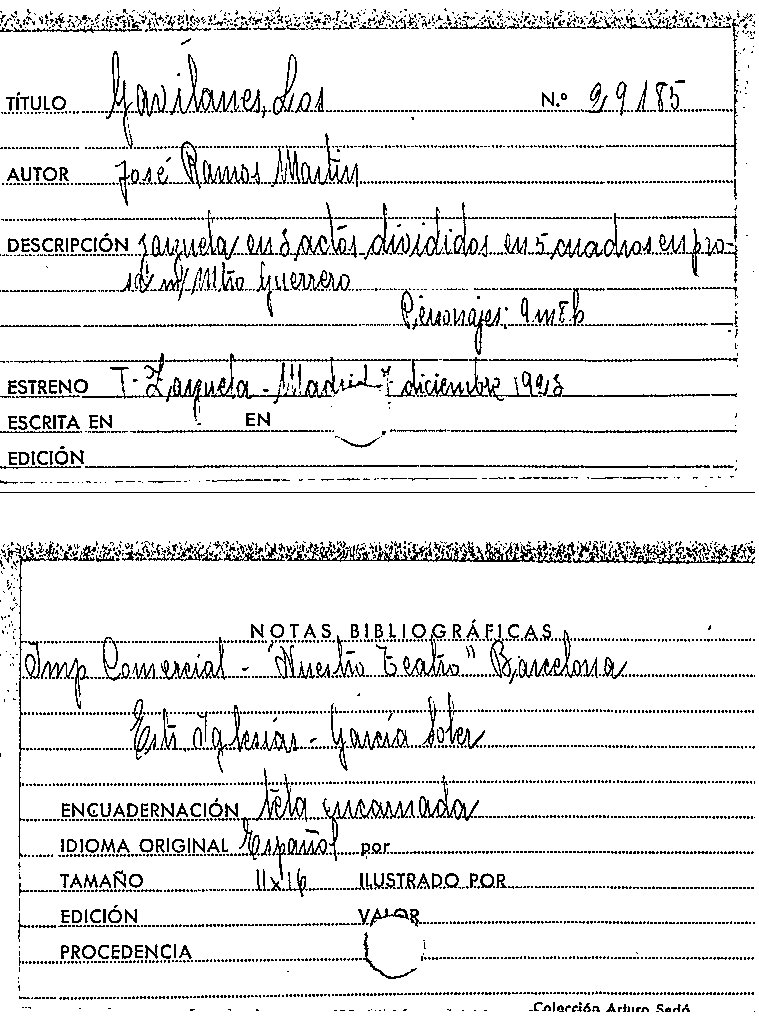 TÍTULO Gavilanes, Los N.º 29185
AUTOR José Ramos Martin
DESCRIPCIÓN Zarzuela en 3 actos divididos en 5 cuadros en pro-
sa m/ Mtro Guerrero
Personajes: 9 m 8 h
ESTRENO T. Zarzuela - Madrid 7 diciembre 1923
ESCRITA EN EN
EDICIÓN
NOTAS BIBLIOGRÁFICAS
Imp Comercial - "Nuestro Teatro" Barcelona
Estr Iglesias - García Soler
ENCUADERNACIÓN tela encarnada
IDIOMA ORIGINAL Español por
TAMAÑO 11x16 ILUSTRADO POR
EDICIÓN VALOR
PROCEDENCIA
Colección Arturo Sedó